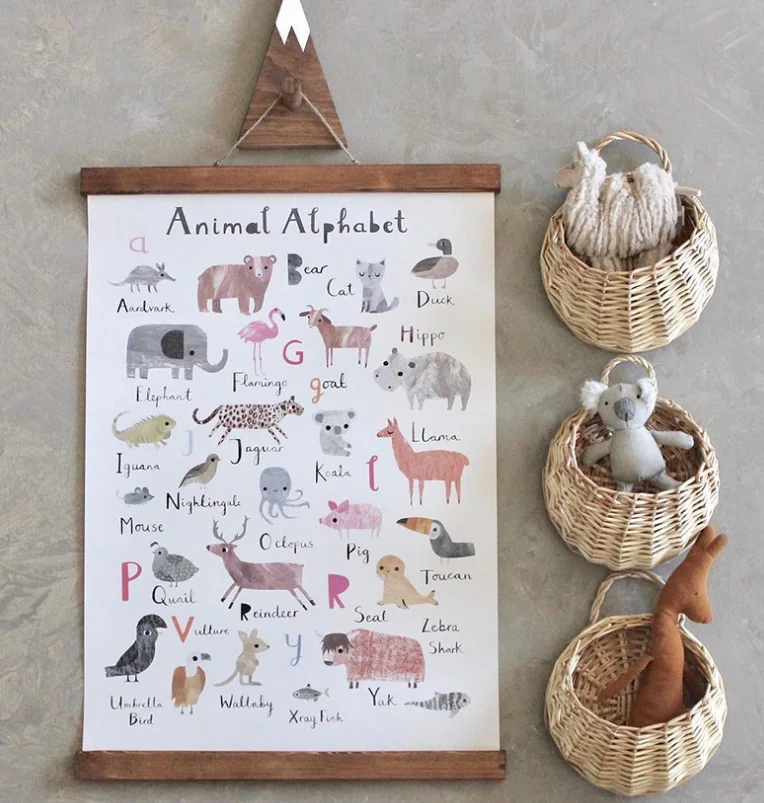 Animal Alphabet
a
Aardvark
Bear
Cat
Duck
Elephant
Flamingo
G
goat
Hippo
Iguana
J
Jaguar
Koala
l
Llama
Mouse
Nightingale
Octopus
Pig
Toucan
P
Quail
Reindeer
R
Seal
Zebra
Shark
Vulture
Umbrella
Bird
Wallaby
y
Xray Fish
Yak